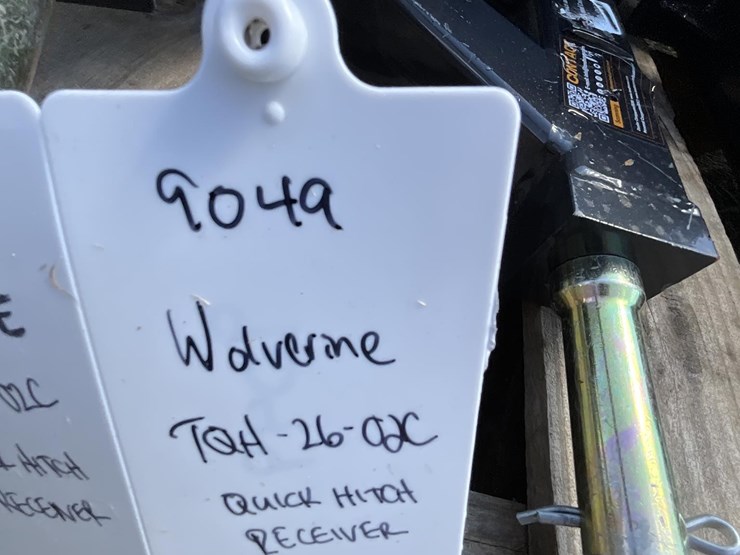 9049
Wolverine
TQH-26-02C
QUICK HITCH
RECEIVER
E
02C
HITCH
RECEIVER
CONTACT